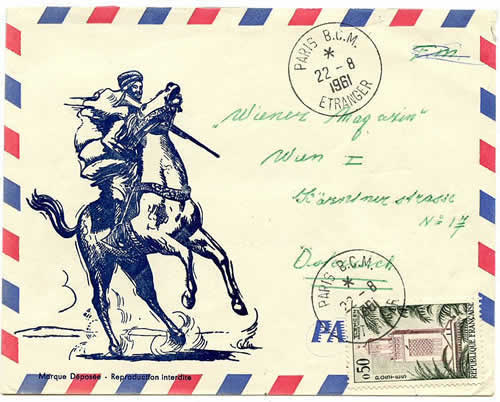 PARIS B.C.M.
*
22 - 8
1961
ETRANGER
F.M.
„Wiener Magazin"
Wien I
Kärntnerstrasse
No 17
PARIS B.C.M.
*
22 - 8
1961
PA
0,50
REPUBLIQUE FRANÇAISE
Marque Déposée - Reproduction Interdite